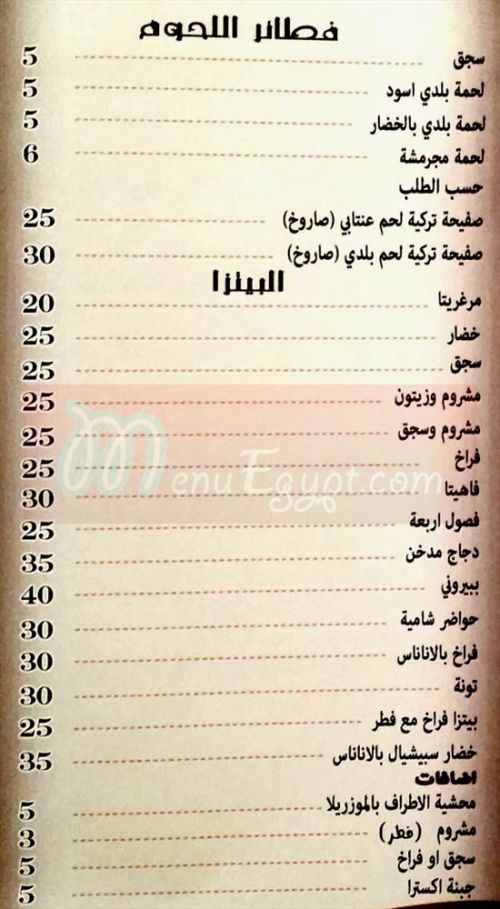 فطائر اللحوم
سجق 5
لحمة بلدي اسود 5
لحمة بلدي بالخضار 5
لحمة مجرمشة 6
حسب الطلب
صفيحة تركية لحم عنتابي (صاروخ) 25
صفيحة تركية لحم بلدي (صاروخ) 30
البيتزا
مرغريتا 20
خضار 25
سجق 25
مشروم وزيتون 25
مشروم وسجق 25
فراخ 25
فاهيتا 30
فصول اربعة 25
دجاج مدخن 35
ببيروني 40
حواضر شامية 30
فراخ بالاناناس 30
تونة 30
بيتزا فراخ مع فطر 25
خضار سبيشيال بالاناناس 35
اضافات
محشية الاطراف بالموزريلا 5
مشروم (فطر) 3
سجق او فراخ 5
جبنة اكسترا 5
MenuEgypt.com